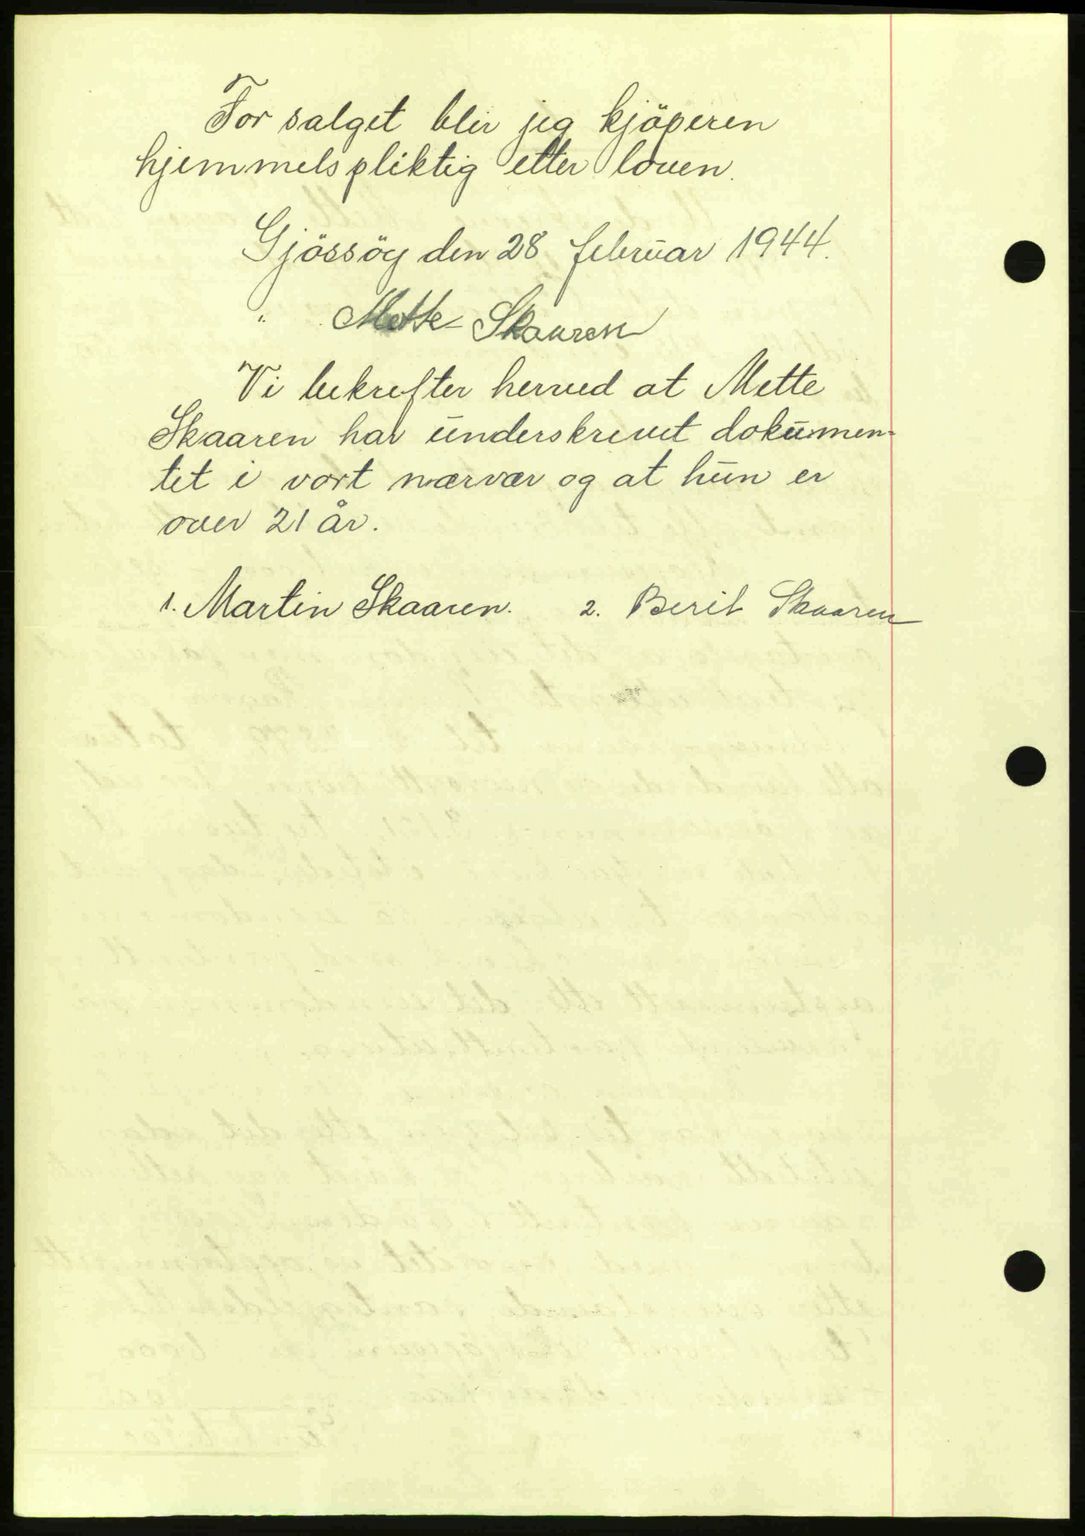 For salget blir jeg kjöperen
hjemmelspliktig etter loven.
Gjössöy den 28 februar 1944.
" Mette Skaaren
Vi bekrefter herved at Mette
Skaaren har underskrevet dokumen-
tet i vort nærvær og at hun er
over 21 år.
1. Martin Skaaren. 2. Berit Skaaren